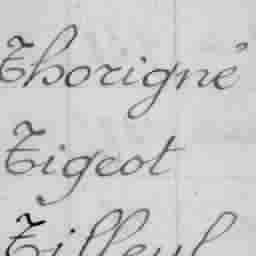 Thorigné
Tigeot
Tilleul